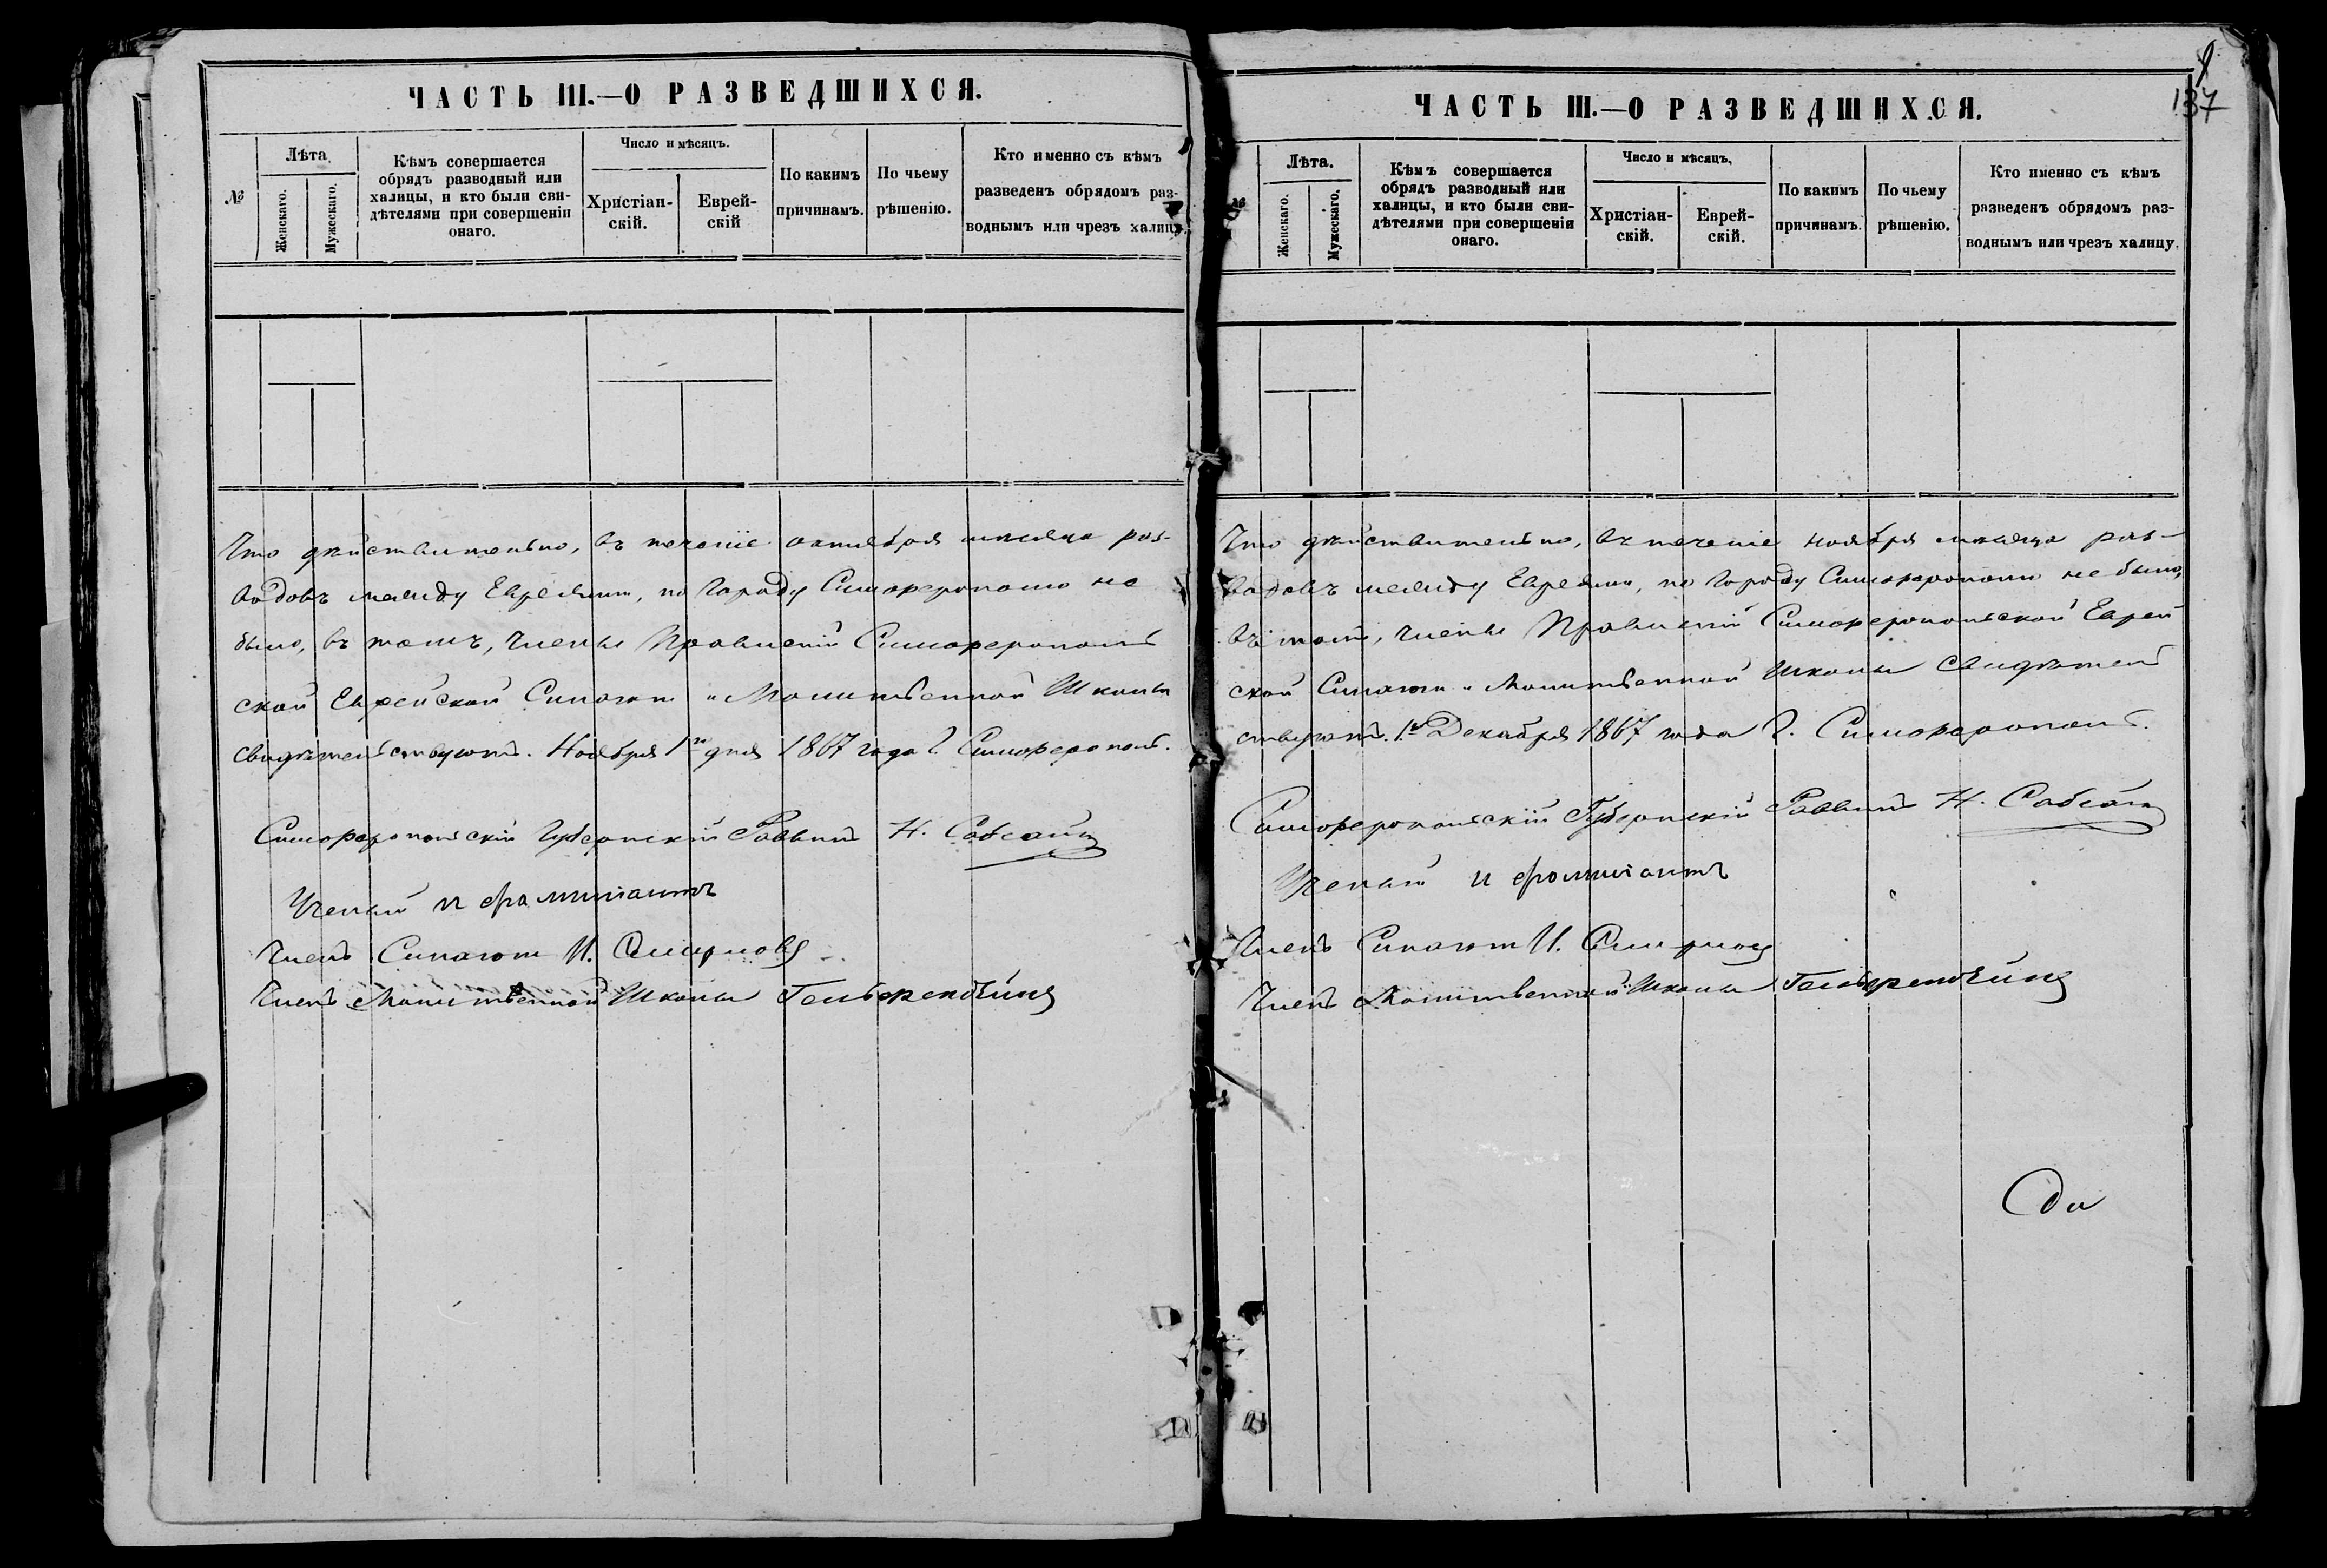 ЧАСТЬ III.—О РАЗВЕДШИХСЯ.
№
Лѣта
Женскаго.
Мужескаго.
Кѣмъ совершается
обрядъ разводный или
халицы, и кто были сви-
дѣтелями при совершеніи
онаго.
Число и мѣсяцъ.
Христіан-
скій.
Еврей-
скій
По какимъ
причинамъ.
По чьему
рѣшенію.
Кто именно съ кѣмъ
разведенъ обрядомъ раз-
воднымъ или чрезъ халиц
Что дѣйствительно, въ теченіе октября мѣсяца раз-
водовъ между Евреями, по городу Симферополю не
было, въ томъ, Члены Правленій Симферополь
ской Еврейской Синагоги и Молитвенной Школы
свидѣтельствуютъ. Ноября 1го дня 1867 года г. Симферополь.
Симферопольскій Губернскій Раввинъ Н.
Ученый и
Членъ Синагоги И. Смирновъ
Членъ Молитвенной Школы
137
ЧАСТЬ III.—О РАЗВЕДШИХСЯ.
№
Лѣта.
Женскаго.
Мужескаго.
Кѣмъ совершается
обрядъ разводный или
халицы, и кто были сви-
дѣтелями при совершеніи
онаго.
Число и мѣсяцъ,
Христіан-
скій.
Еврей-
скій.
По какимъ
причинамъ.
По чьему
рѣшенію.
Кто именно съ кѣмъ
разведенъ обрядомъ раз-
воднымъ или чрезъ халицу.
Что дѣйствительно, въ теченіе ноября мѣсяца раз-
водовъ между Евреями, по городу Симферополю не было,
въ томъ, Члены Правленій Симферопольской Еврей
ской Синагоги и Молитвенной Школы свидѣтель
ствуютъ. 1го Декабря 1867 года г. Симферополь.
Симферопольскій Губернскій Раввинъ Н.
Ученый и
Членъ Синагоги И.
Членъ Молитвенной Школы